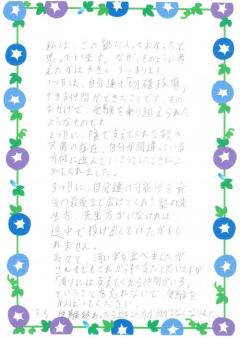 私は、この塾に入ってよかったと
思っています。なぜ、そのように考
えたかは大きく3つあります。
1つ目は、自分達で切磋琢磨
できる仲間ができたことです。その
おかげで、受験を乗り越えられた
ようなものです。
2つ目に、陰で支えてくれた
の存在。自分が間違っている
方向に進んでいこうとしたときに
めてくれました。
3つ目に、自分達の可能性を最
後の最後まで広げてくれた塾の先
生方。先生方がいなければ、
途中で投げ出していたかもし
れません。
長々と、汚い字を並べましたが
さんもこれから大変だと思いますが
「周りには支えてくれる仲間がいる」
ということを忘れないで、受験を
がんばってください。